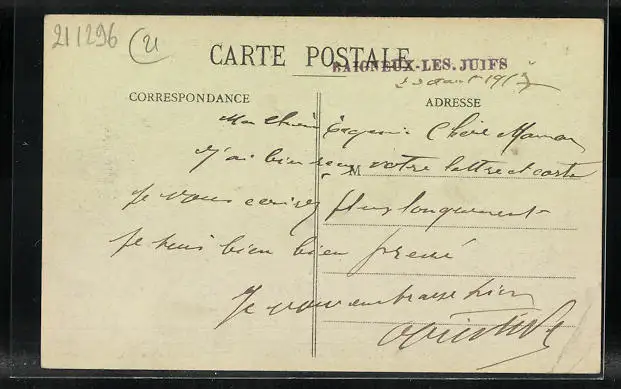 211296
21
CARTE POSTALE
BAIGNEUX-LES-JUIFS
23 août 1917
CORRESPONDANCE
ADRESSE
Ma chère Eugénie Chère Maman
J'ai bien reçu votre lettre et carte
M
Je vous écrirez plus longuement
Je suis bien bien pressé
Je vous embrasse bien